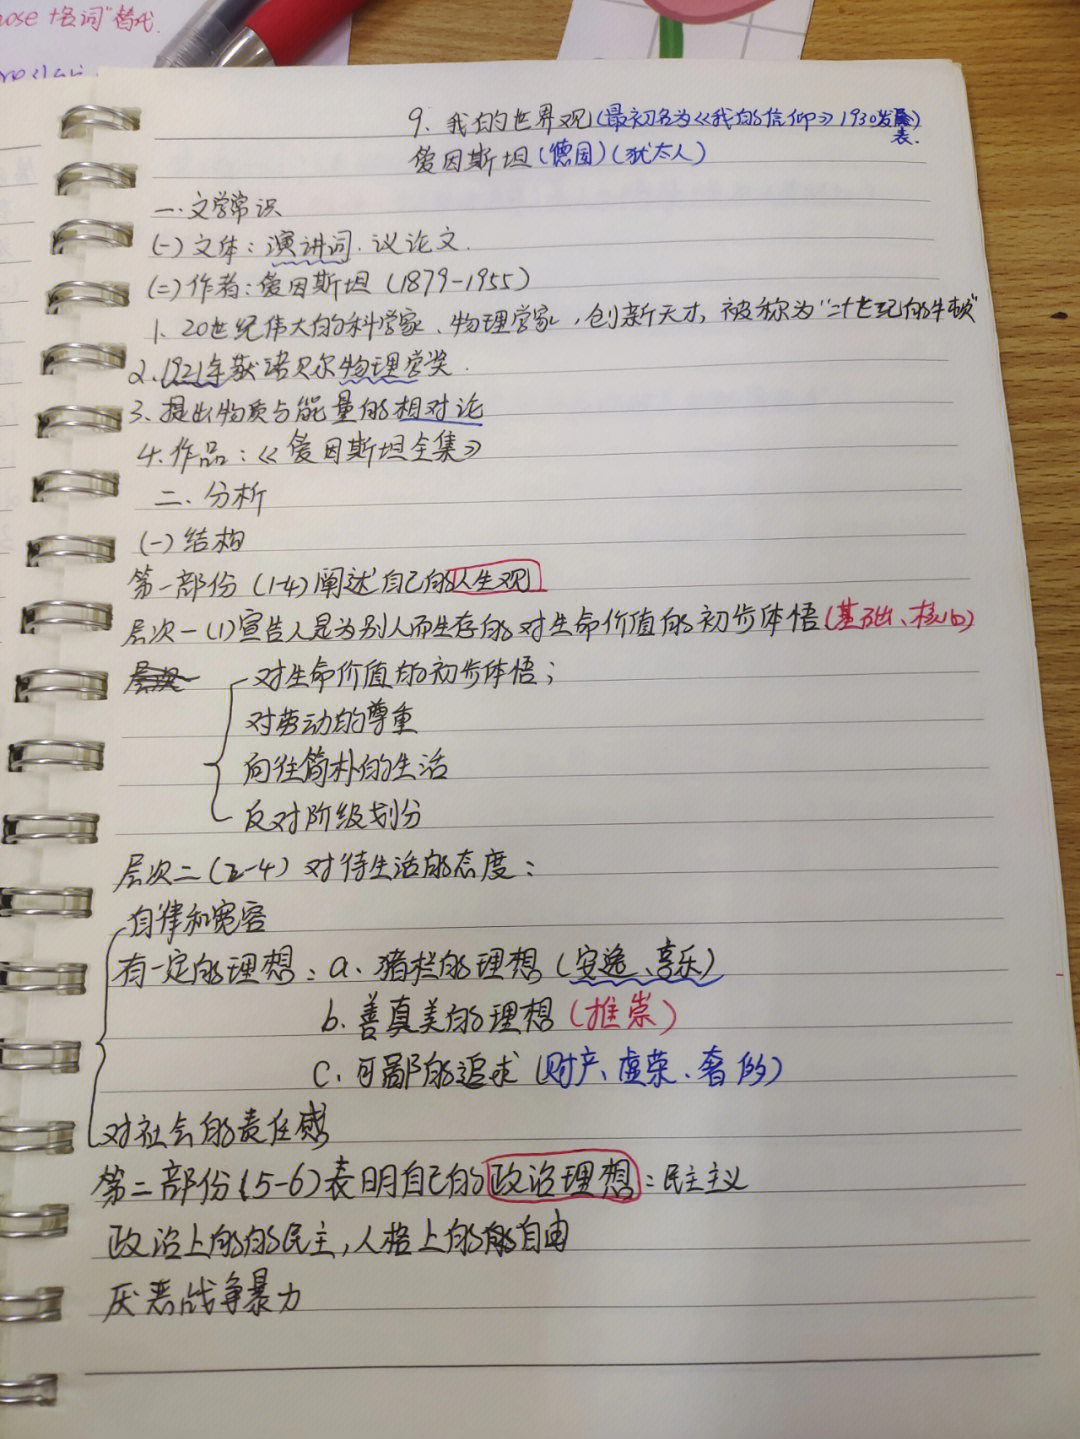 ose+名词"替代.
9. 我的世界观(最初名为《我的信仰》1930发表)
爱因斯坦(德国)(犹太人)
一.文学常识
(一)文体:演讲词.议论文.
(二)作者:爱因斯坦(1879-1955)
1. 20世纪伟大的科学家、物理学家,创新天才,被称为"二十世纪的牛顿"
2.1921年获诺贝尔物理学奖.
3.提出物质与能量的相对论
4.作品:《爱因斯坦全集》
二.分析
(一)结构
第一部份(1-4)阐述自己的人生观
层次一(1)宣告人是为别人而生存的对生命价值的初步体悟(基础、核心)
层次
对生命价值的初步体悟;
对劳动的尊重
向往简朴的生活
反对阶级划分
层次二(2-4)对待生活的态度:
自律和宽容
有一定的理想:a.猪栏的理想(安逸、享乐)
b.善真美的理想(推崇)
c.可鄙的追求(财产、虚荣、奢侈)
对社会的责任感
第二部份(5-6)表明自己的政治理想:民主主义
政治上的的民主,人格上的的自由
厌恶战争暴力